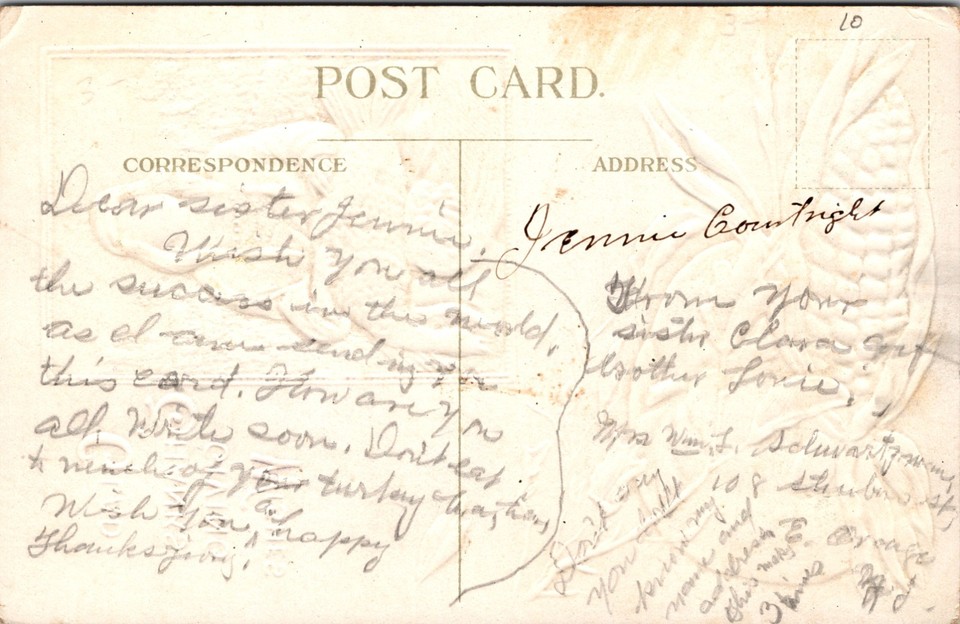 10
POST CARD.
CORRESPONDENCE
ADDRESS
Dear sister Jennie.
Wish you all
the success in this world,
as I am sending you
this card. How are you
all. Write soon. Don't eat
to much of your turkey
Wish you a happy
Thanksgiving.
Jennie Courtright
From your
sister Clara and
brother Louie.
Mrs Wm. L. Schwartz
108 st,
E. Orange
N. J.
Don't say
you don't
know my
name and
address
this
3 times